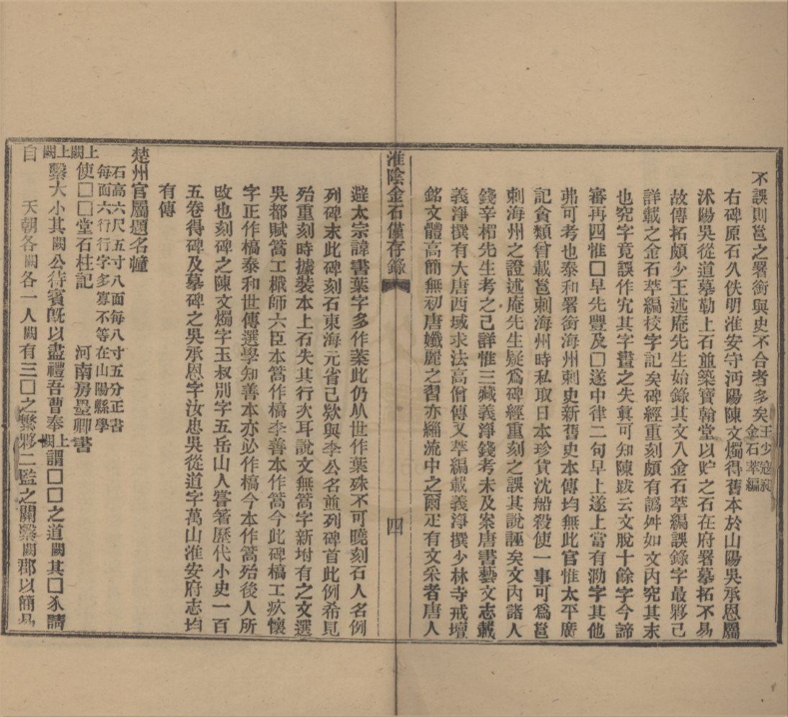 不誤則邕之署銜與史不合者多矣王少寇昶
金石萃編
右碑原石久佚明淮安守沔陽陳文燭得舊本於山陽吳承恩屬
沭陽吳從道摹勒上石並築寶翰堂以貯之石在府署摹拓不易
故傳拓頗少王述庵先生始錄其文入金石萃編誤錄字最夥己
詳載之金石萃編校字記矣碑經重刻頗有譌舛如文內究其末
也究字竟誤作究其字畫之失冀可知陳跋云文脫十餘字今諦
審再四惟□早先豐及□遂中律二句早上遂上當有泐字其他
弗可考也泰和署銜海州刺史新舊史本傳均無此官惟太平廣
記貪類曾載邕刺海州時私取日本珍貨沈船殺使一事可為邕
刺海州之證述庵先生疑為碑經重刻之誤其說誣矣文內諸人
錢辛楣先生考之已詳惟三藏義淨錢考未及案唐書藝文志載
義淨撰有大唐西域求法高僧傳又萃編載義淨撰少林寺戒壇
銘文體高簡無初唐纖麗之習亦緇流中之爾疋有文采者唐人
淮陰金石僅存錄
四
避太宗諱書葉字多作枼此仍从世作葉殊不可曉刻石人名例
列碑末此碑刻石東海元省己款與李公名並列碑首此例希見
殆重刻時據裝本上石失其行次耳說文無篙字新坿有之文選
吳都賦篙工檝師六臣本篙作槁李善本作篙今此碑槁工疚懷
字正作槁泰和世傳選學知善本亦必作槁今本作篙殆後人所
改也刻碑之陳文燭字玉叔別字五岳山人嘗著歷代小史一百
五卷得碑及摹碑之吳承恩字汝忠吳從道字萬山淮安府志均
有傳
楚州官屬題名幢
石高六尺五寸八面每八寸五分正書
每面六行行字多寡不等在山陽縣學
上闕上闕使□□堂石柱記　河南房墨卿書
上闕繫大小其闕公待賓既以盡禮吾曹奉上闕謂□□之道闕其□永請
自　天朝各闕各一人闕有三□之繁夥二監之關繫闕郡以簡易